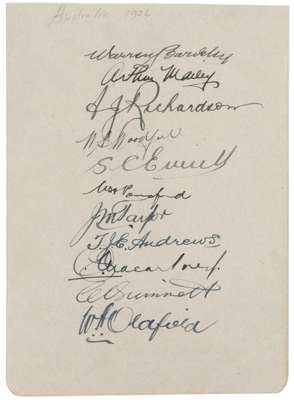 Australia 1926
Warren Bardsley
Arthur Mailey
A J Richardson
W M Woodfull
S C Everett
W H Ponsford
J M Taylor
T. J. E. Andrews
C G Macartney.
C V Grimmett
W A Oldfield